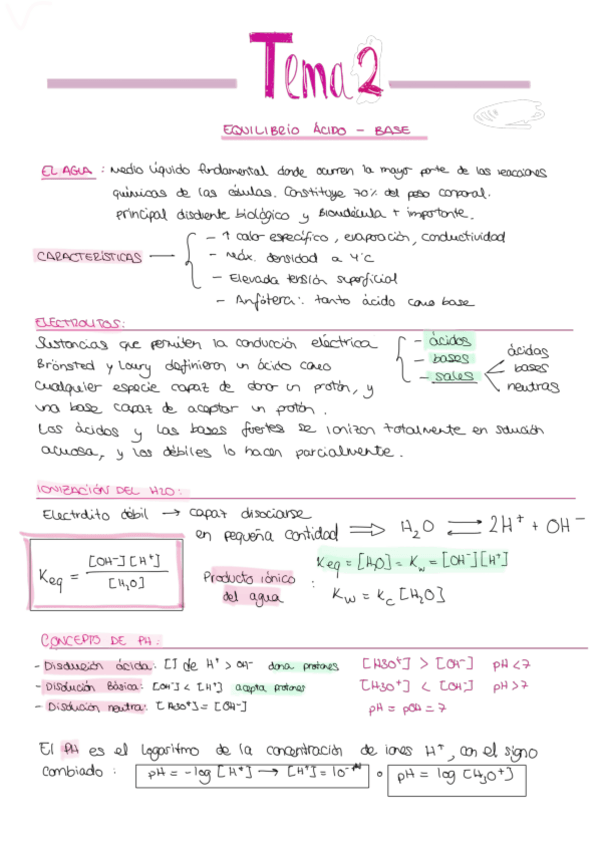 Tema 2
EQUILIBRIO ÁCIDO - BASE
EL AGUA : Medio líquido fundamental donde ocurren la mayor parte de las reacciones
químicas de las células. Constituye 70% del peso corporal.
principal disolvente biológico y Biomolécula + importante.
- ↑ calor específico, evaporación, conductividad
CARACTERÍSTICAS → - Máx. densidad a 4°C
- Elevada tensión superficial
- Anfótera: tanto ácido como base
ELECTROLITOS:
Sustancias que permiten la conducción eléctrica - ácidos
Brönsted y Lowry definieron un ácido como - bases ácidas
cualquier especie capaz de donar un protón, y - sales bases
una base capaz de aceptar un protón. neutras
Los ácidos y las bases fuertes se ionizan totalmente en solución
acuosa, y los débiles lo hacen parcialmente.
IONIZACIÓN DEL H2O:
Electrolito débil → capaz disociarse
en pequeña cantidad ⇒ H₂O ⇌ 2H⁺ + OH⁻
Keq = [OH⁻][H⁺] / [H₂O]
Keq = [H₂O] = Kw = [OH⁻][H⁺]
Producto iónico
del agua : Kw = Kc [H₂O]
CONCEPTO DE PH:
- Disolución ácida: [] de H⁺ > OH⁻ dona protones [H3O⁺] > [OH⁻] pH < 7
- Disolución Básica: [OH⁻] < [H⁺] acepta protones [H3O⁺] < [OH⁻] pH > 7
- Disolución neutra: [H3O⁺] = [OH⁻] pH = pOH = 7
El PH es el logaritmo de la concentración de iones H⁺, con el signo
cambiado : pH = -log [H⁺] → [H⁺] = 10⁻ᵖᴴ o pH = log [H₃O⁺]